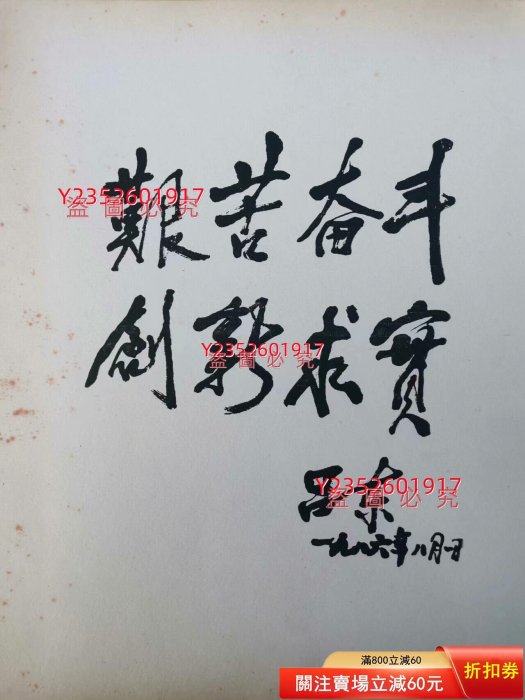 艱苦奋斗
Y2352601917
盜圖必究
創新求實
Y2352601917
盜圖必究
吕东
Y2352601917
盜圖必究
一九八六年八月一日
滿800立減60
關注賣場立減60元
折扣券